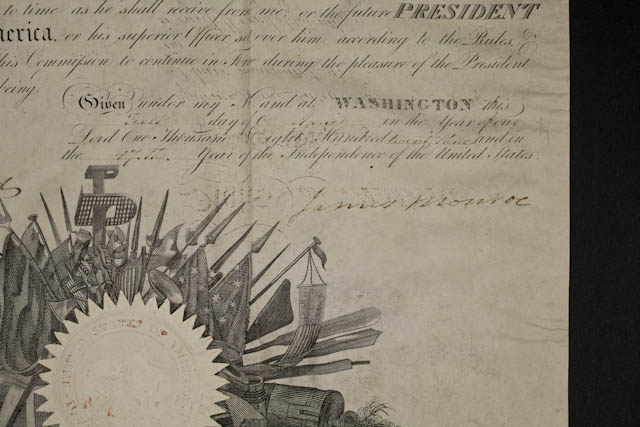 to time as he shall receive from me, or the future PRESIDENT
erica, or his superior Officer set over him, according to the Rules, &
his Commission to continue in force during the pleasure of the President
being.
Given under my Hand at WASHINGTON this
first day of in the Year of our
Lord One Thousand Eight Hundred twenty three and in
the 47th Year of the Independence of the United States.
James Monroe
STATES OF AMERICA